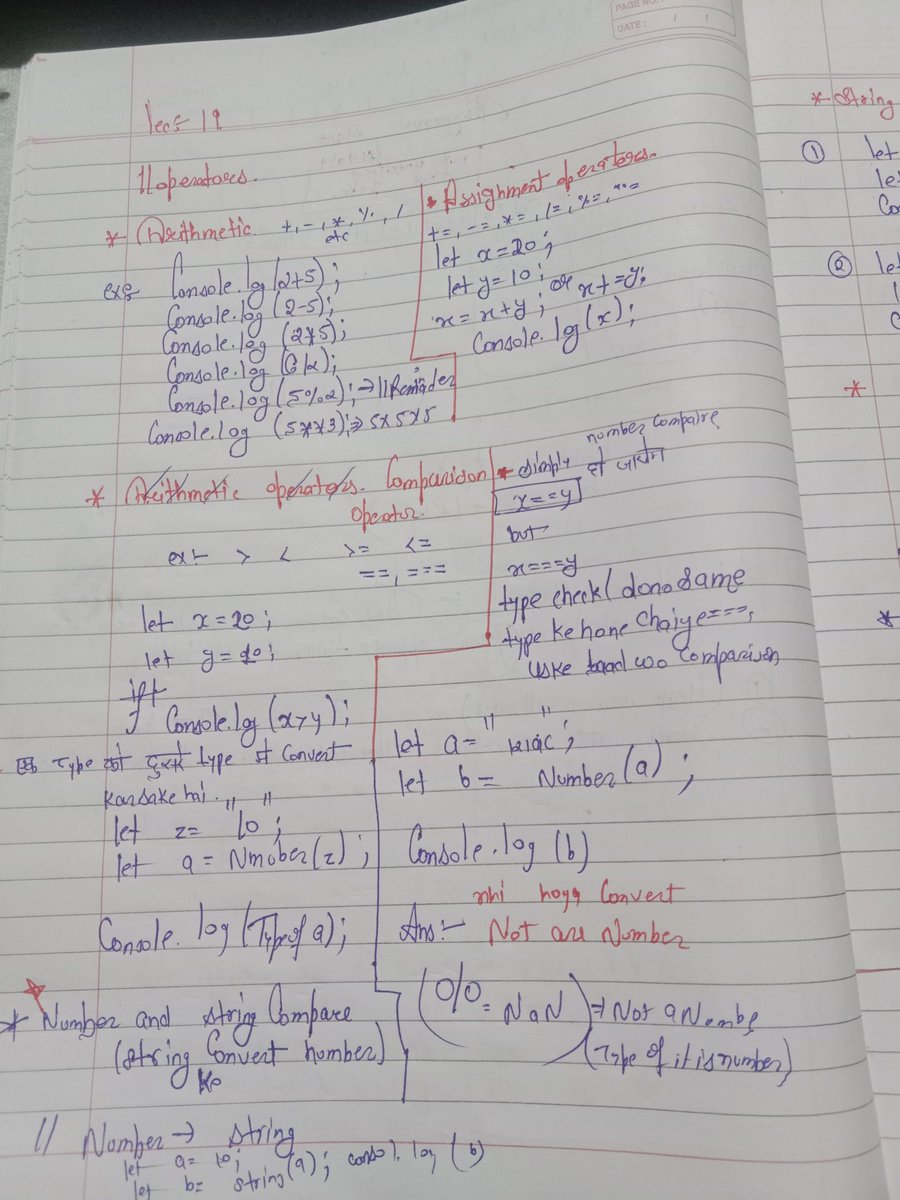 PAGE NO.
DATE: / /
lec:- 19
//operators.
* Arithmetic +, -, *, %, /
etc
exs Console.log(2+5);
Console.log (2-5);
Console.log (2*5);
Console.log (6/2);
Console.log (5%2); → //Remainder
Console.log (5**3); ⇒ 5x5x5
• Assignment operators.
+=, -=, *=, /=, %=, **=
let x=20;
let y=10;
x=x+y; or x+=y;
Console.log(x);
* Arithmetic operators. Comparison
Operator.
ex:- > < >= <=
==, ===
let x=20;
let y=10;
Console.log(x>y);
number compaire
simply हो जायेगा
x==y
but
x===y
type check/ dono same
type ke hone chaiye ===,
uske baad wo comparison
एक Type को दूसरे type में convert
kar sake hai.
let z= "10";
let a = Nmuber(z);
Console.log(Type of a);
let a= " "
let b= Number(a);
Console.log (b)
nhi hoga Convert
Ans:- Not are Number
* Number and string Compare
(string Convert number)
ko
(0/0 = NaN) ⇒ Not a Numbe
(Type of it is number)
// Number → string
let a= 10;
let b= string(a); consol. log (b)
* String
① let
let
Co
② let
*
*